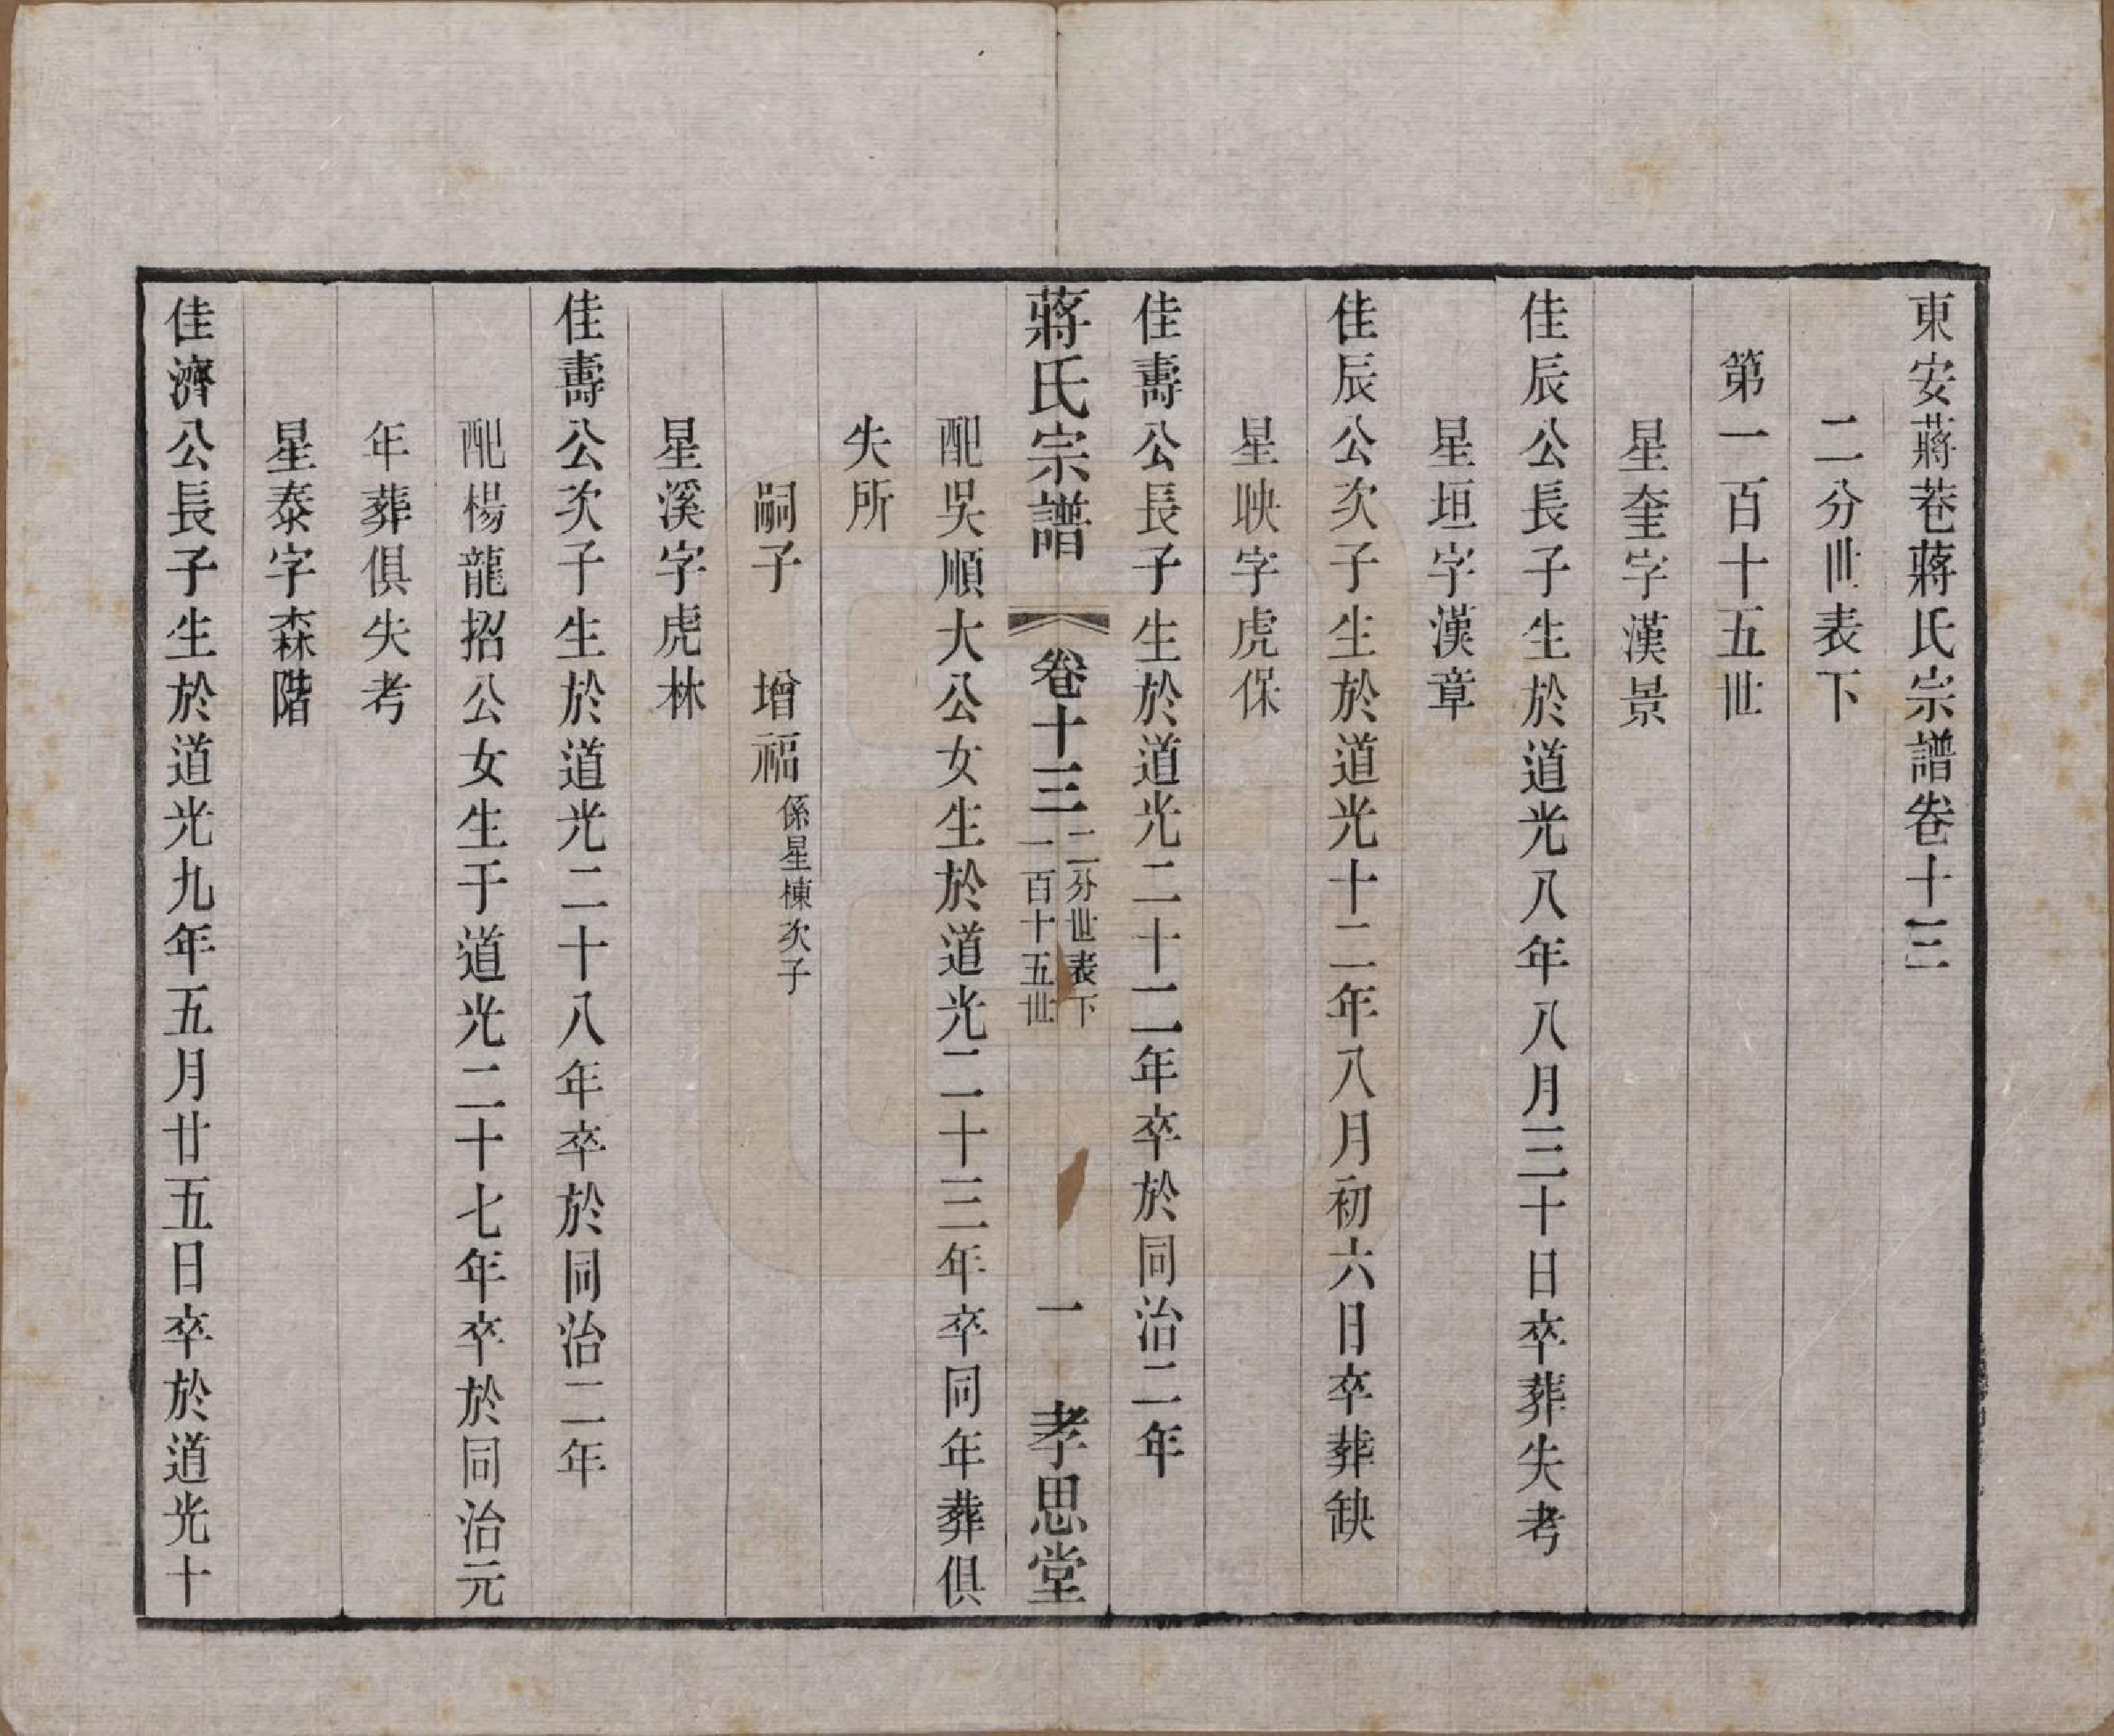 東安蔣巷蔣氏宗譜卷十三
二分世表下
第一百十五世
星奎字漢景
佳辰公長子生於道光八年八月三十日卒葬失考
星垣字漢章
佳辰公次子生於道光十二年八月初六日卒葬缺
星映字虎保
佳壽公長子生於道光二十二年卒於同治二年
蔣氏宗譜 卷十三 二分世表下 一百十五世 一 孝思堂
配吳順大公女生於道光二十三年卒同年葬俱
失所
嗣子 增福 係星棟次子
星溪字虎林
佳壽公次子生於道光二十八年卒於同治二年
配楊龍招公女生于道光二十七年卒於同治元
年葬俱失考
星泰字森階
佳濟公長子生於道光九年五月廿五日卒於道光十